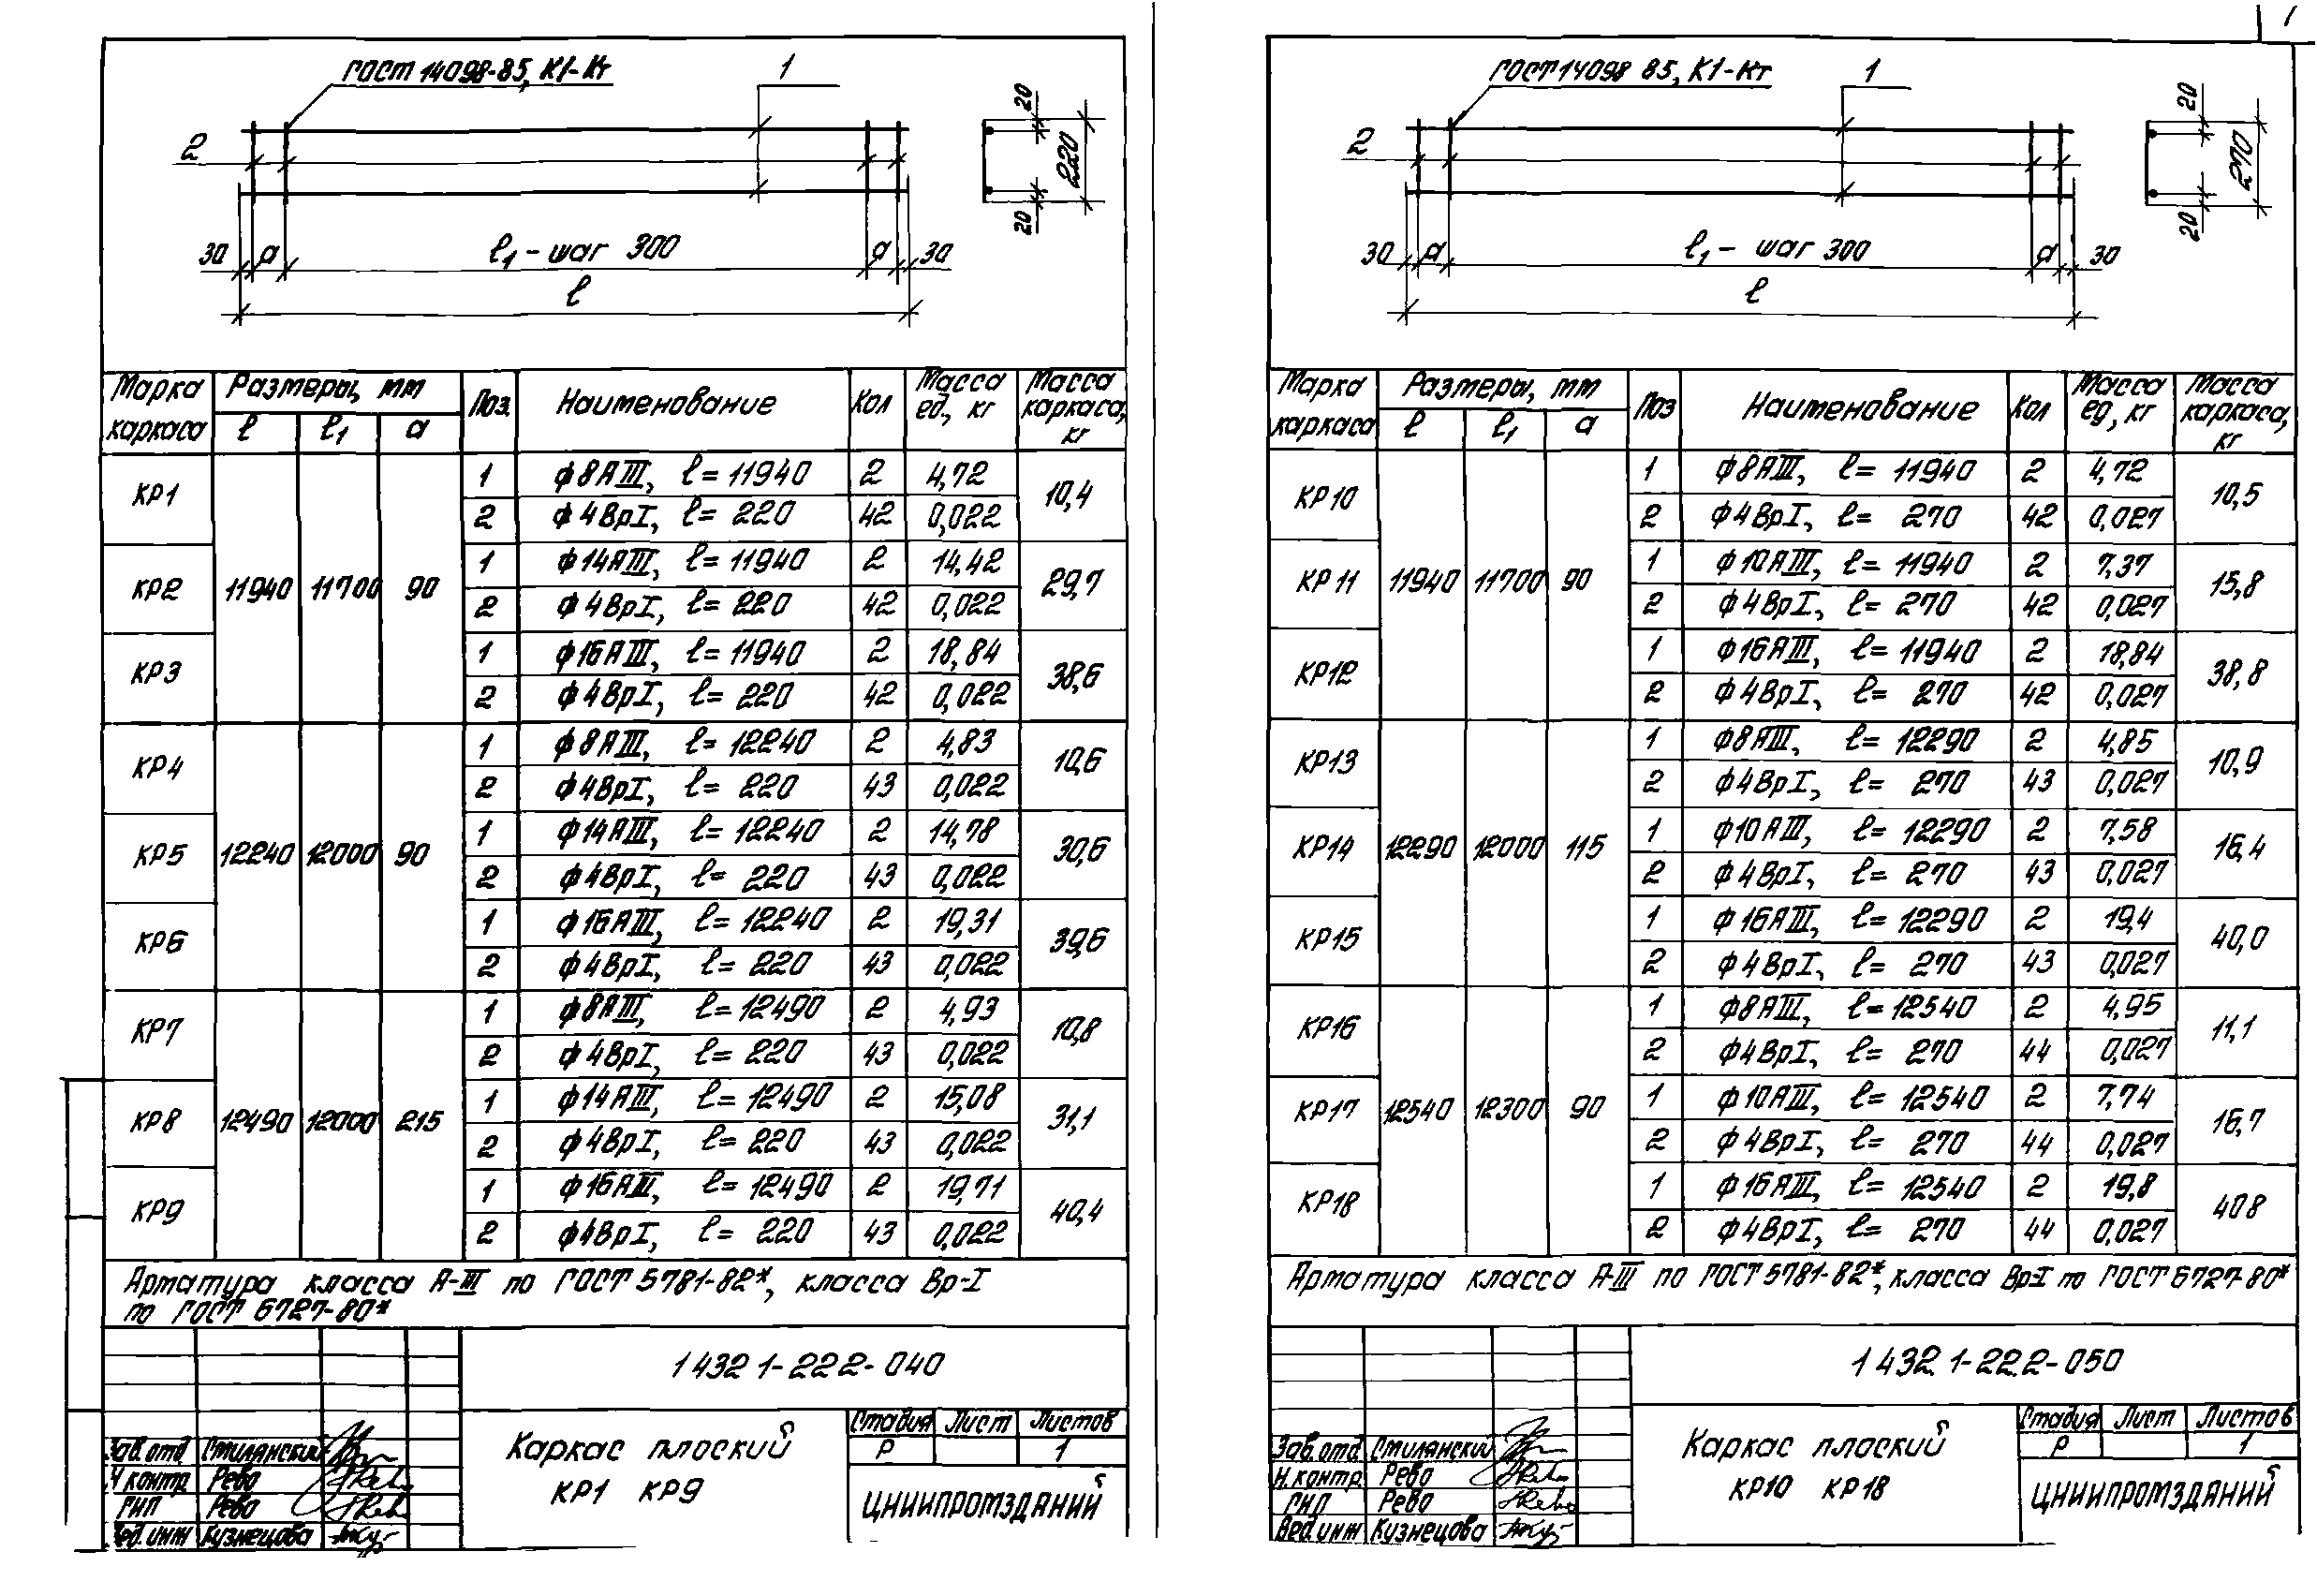 ГОСТ 14098-85, К1-Кт
1
2
20
220
20
30
а
ℓ1 - шаг 300
а
30
ℓ
Марка каркаса | Размеры, мм | Поз. | Наименование | Кол | Масса ед., кг | Масса каркаса, кг
ℓ | ℓ1 | а
КР1 | 1 | ф8АIII, ℓ=11940 | 2 | 4,72 | 10,4
2 | ф4ВрI, ℓ=220 | 42 | 0,022
КР2 | 11940 | 11700 | 90 | 1 | ф14АIII, ℓ=11940 | 2 | 14,42 | 29,7
2 | ф4ВрI, ℓ=220 | 42 | 0,022
КР3 | 1 | ф16АIII, ℓ=11940 | 2 | 18,84 | 38,6
2 | ф4ВрI, ℓ=220 | 42 | 0,022
КР4 | 1 | ф8АIII, ℓ=12240 | 2 | 4,83 | 10,6
2 | ф4ВрI, ℓ=220 | 43 | 0,022
КР5 | 12240 | 12000 | 90 | 1 | ф14АIII, ℓ=12240 | 2 | 14,78 | 30,6
2 | ф4ВрI, ℓ=220 | 43 | 0,022
КР6 | 1 | ф16АIII, ℓ=12240 | 2 | 19,31 | 39,6
2 | ф4ВрI, ℓ=220 | 43 | 0,022
КР7 | 1 | ф8АIII, ℓ=12490 | 2 | 4,93 | 10,8
2 | ф4ВрI, ℓ=220 | 43 | 0,022
КР8 | 12490 | 12000 | 215 | 1 | ф14АIII, ℓ=12490 | 2 | 15,08 | 31,1
2 | ф4ВрI, ℓ=220 | 43 | 0,022
КР9 | 1 | ф16АIII, ℓ=12490 | 2 | 19,71 | 40,4
2 | ф4ВрI, ℓ=220 | 43 | 0,022
Арматура класса А-III по ГОСТ 5781-82*, класса Вр-I
по ГОСТ 6727-80*
1 432 1-22 2-040
Каркас плоский
КР1 КР9
Стадия | Лист | Листов
Р | 1
ЦНИИПРОМЗДАНИЙ
Зав. отд | Смилянский
Н контр | Рево
ГИП | Рево
Вед. инж | Кузнецова
ГОСТ 14098 85, К1-Кт
1
2
20
270
20
30
а
ℓ1 - шаг 300
а
30
ℓ
Марка каркаса | Размеры, мм | Поз | Наименование | Кол | Масса ед, кг | Масса каркаса, кг
ℓ | ℓ1 | а
КР10 | 1 | ф8АIII, ℓ=11940 | 2 | 4,72 | 10,5
2 | ф4ВрI, ℓ=270 | 42 | 0,027
КР11 | 11940 | 11700 | 90 | 1 | ф10АIII, ℓ=11940 | 2 | 7,37 | 15,8
2 | ф4ВрI, ℓ=270 | 42 | 0,027
КР12 | 1 | ф16АIII, ℓ=11940 | 2 | 18,84 | 38,8
2 | ф4ВрI, ℓ=270 | 42 | 0,027
КР13 | 1 | ф8АIII, ℓ=12290 | 2 | 4,85 | 10,9
2 | ф4ВрI, ℓ=270 | 43 | 0,027
КР14 | 12290 | 12000 | 115 | 1 | ф10АIII, ℓ=12290 | 2 | 7,58 | 16,4
2 | ф4ВрI, ℓ=270 | 43 | 0,027
КР15 | 1 | ф16АIII, ℓ=12290 | 2 | 19,4 | 40,0
2 | ф4ВрI, ℓ=270 | 43 | 0,027
КР16 | 1 | ф8АIII, ℓ=12540 | 2 | 4,95 | 11,1
2 | ф4ВрI, ℓ=270 | 44 | 0,027
КР17 | 12540 | 12300 | 90 | 1 | ф10АIII, ℓ=12540 | 2 | 7,74 | 16,7
2 | ф4ВрI, ℓ=270 | 44 | 0,027
КР18 | 1 | ф16АIII, ℓ=12540 | 2 | 19,8 | 40 8
2 | ф4ВрI, ℓ=270 | 44 | 0,027
Арматура класса А-III по ГОСТ 5781-82*, класса Вр-I по ГОСТ 6727-80*
1 432 1-22.2-050
Каркас плоский
КР10 КР18
Стадия | Лист | Листов
Р | 1
ЦНИИПРОМЗДАНИЙ
Зав. отд | Смилянский
Н. контр. | Рево
ГИП | Рево
Вед. инж | Кузнецова